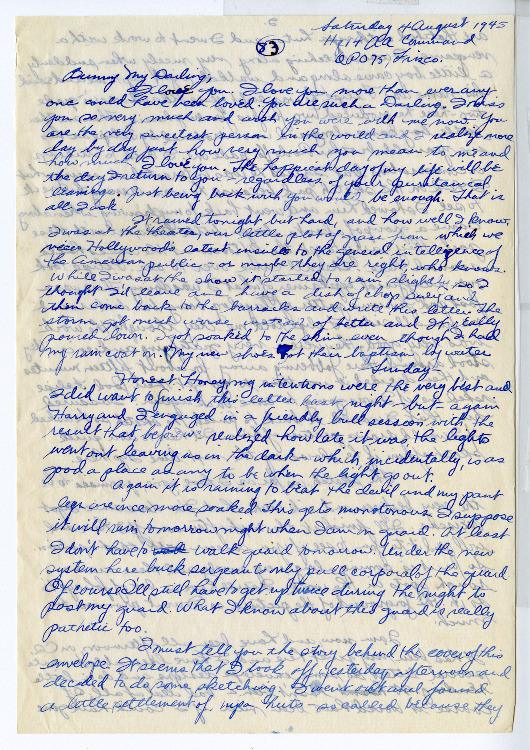 Saturday 4 August 1945
83
Hq 14 AA Command
APO 75, Frisco.
Bunny My Darling,
I love you. I love you more than ever any
one could have been loved. You are such a Darling. I miss
you so very much and wish you were with me now. You
are the very sweetest person in the world and I realize more
day by day just how very much you mean to me and
how much I love you. The happiest day of my life will be
the day I return to you - regardless of your puritanical
leanings. Just being back with you will be enough. That is
all I ask.
It rained tonight but hard, and how well I know.
I was at the theater, our little plot of grass from which we
view Hollywood's latest insults to the general intelligence of
the American public - or maybe they are right, who knows.
While I was at the show it started to rain slightly so I
thought I'd leave and have a dish of chop suey and
then come back to the barracks and write this letter. The
storm got much worse instead of better and it really
poured down. I got soaked to the skin even though I had
my raincoat on. My new shoes got their baptism by water
Sunday -
Honest Honey, my intentions were the very best and
I did want to finish this letter last night - but - again
Harry and I engaged in a friendly bull session with the
result that before we realized how late it was the lights
went out leaving us in the dark - which, incidentally, is as
good a place as any to be when the lights go out.
Again it is raining to beat the devil and my pant
legs are once more soaked. This gets monotonous. I suppose
it will rain tomorrow night when I am on guard. At least
I don't have to walk guard tomorrow. Under the new
system here buck sergeants only pull corporal of the guard
Of course I'll still have to get up twice during the night to
post my guard. What I know about this guard is really
pathetic too.
I must tell you the story behind the cover of this
envelope. It seems that I took off yesterday afternoon and
decided to do some sketching. I went out and found
a little settlement of nipa huts - so called because they